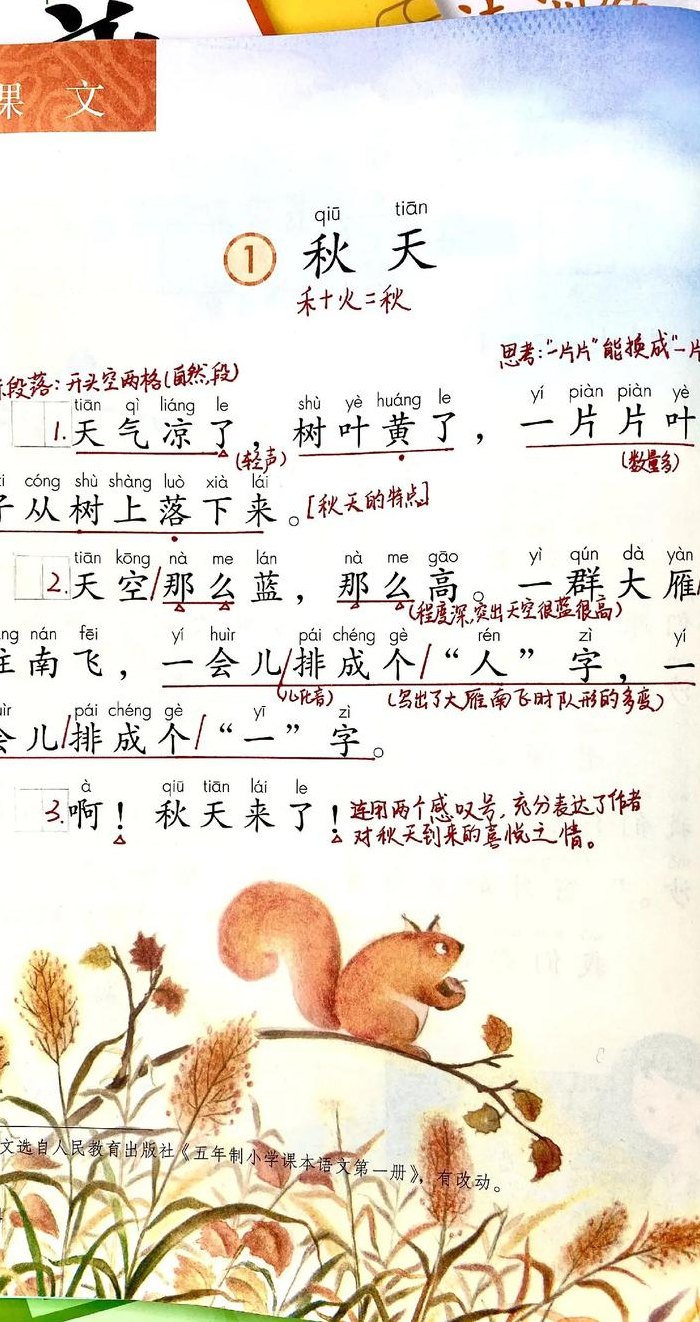 课 文
qiū tiān
1 秋 天
禾+火=秋
思考:“一片片”能换成“一片
标段落:开头空两格(自然段)
tiān qì liáng le shù yè huáng le yí piàn piàn yè
1. 天气凉了,树叶黄了,一片片叶
(轻声) (数量多)
zi cóng shù shàng luò xià lái
子从树上落下来。[秋天的特点]
tiān kōng nà me lán nà me gāo yì qún dà yàn
2. 天空/那么蓝,那么高。一群大雁/
(程度深,突出天空很蓝很高)
nán fēi yí huìr pái chéng gè rén zì yí
往南飞,一会儿/排成个/“人”字,一
(儿化音) (写出了大雁南飞时队形的多变)
pái chéng gè yī zì
会儿/排成个/“一”字。
à qiū tiān lái le
3. 啊!秋天来了!
连用两个感叹号,充分表达了作者
对秋天到来的喜悦之情。
文选自人民教育出版社《五年制小学课本语文第一册》,有改动。